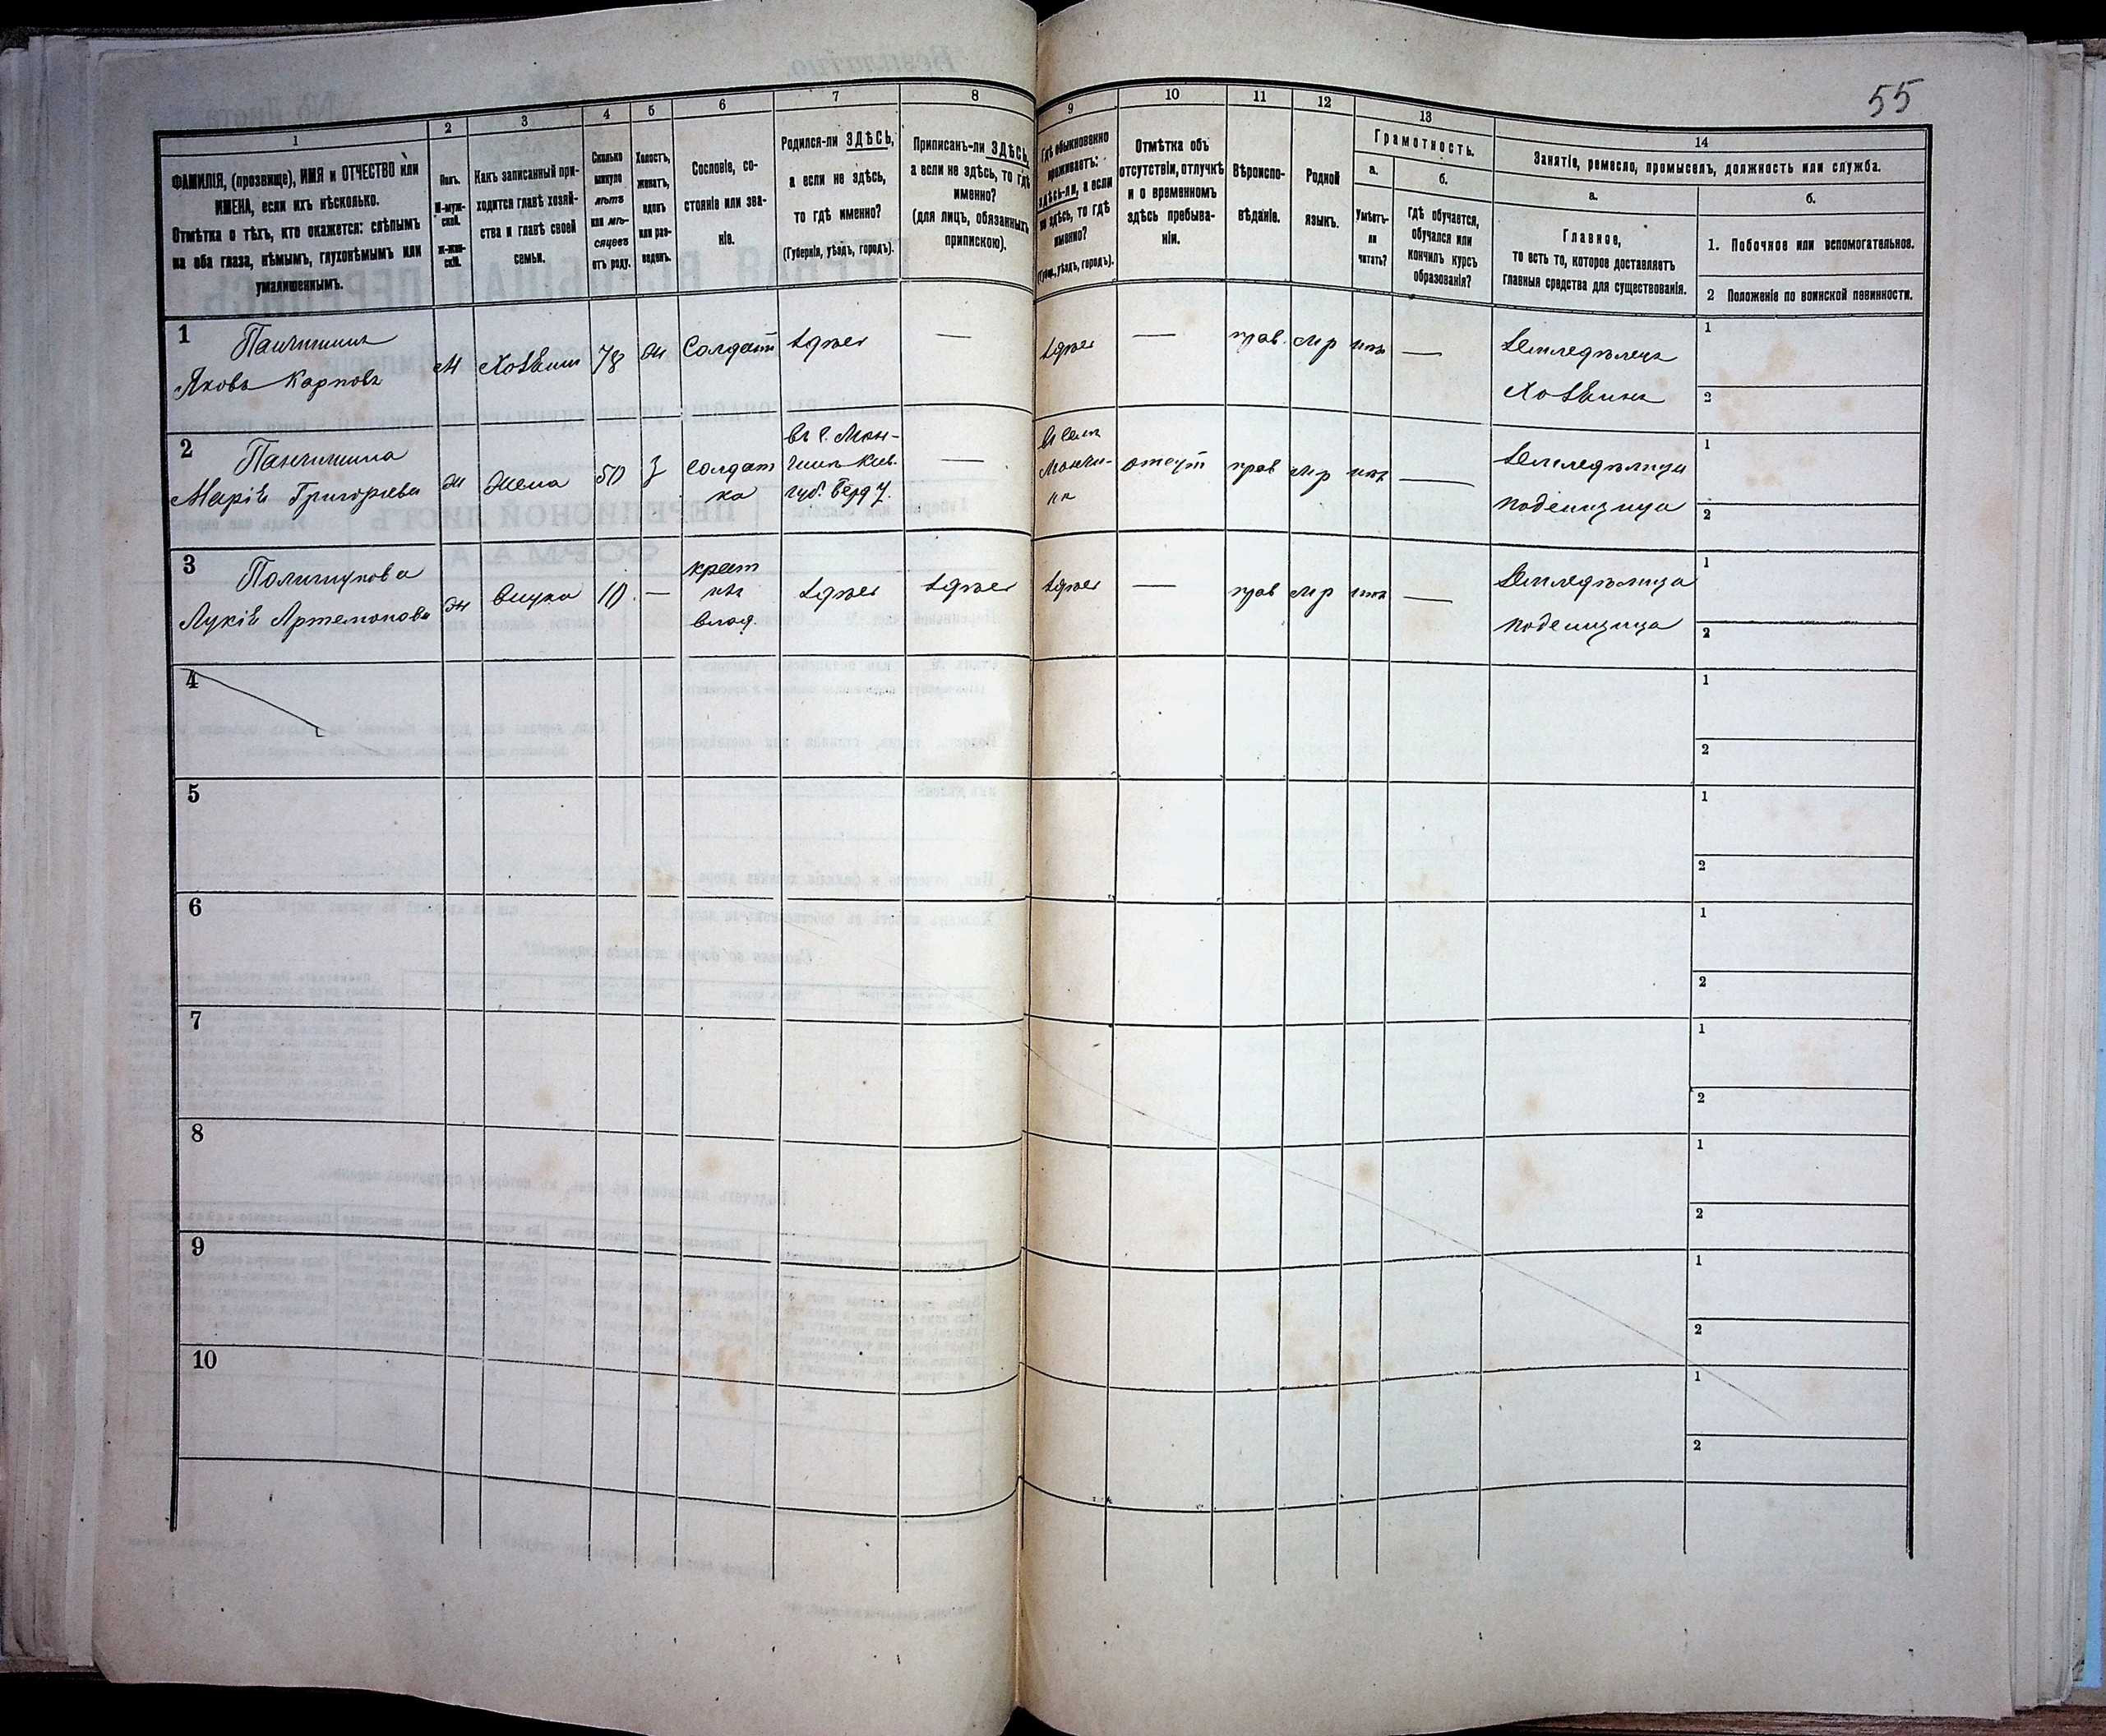 55
1
2
3
4
5
6
7
8
9
10
11
12
13
14
ФАМИЛІЯ, (прозвище), ИМЯ и ОТЧЕСТВО или
ИМЕНА, если ихъ нѣсколько.
Отмѣтка о тѣхъ, кто окажется: слѣпымъ
на оба глаза, нѣмымъ, глухонѣмымъ или
умалишеннымъ.
Полъ.
М-муж-
ской.
ж-жен-
скій.
Какъ записанный при-
ходится главѣ хозяй-
ства и главѣ своей
семьи.
Сколько
минуло
лѣтъ
или мѣ-
сяцевъ
отъ роду.
Холостъ,
женатъ,
вдовъ
или раз-
веденъ.
Сословіе, со-
стояніе или зва-
ніе.
Родился-ли ЗДѢСЬ,
а если не здѣсь,
то гдѣ именно?
(Губернія, уѣздъ, городъ).
Приписанъ-ли ЗДѢСЬ,
а если не здѣсь, то гдѣ
именно?
(для лицъ, обязанныхъ
припискою).
Гдѣ обыкновенно
проживаетъ:
здѣсь-ли, а если
не здѣсь, то гдѣ
именно?
(Губер., уѣздъ, городъ).
Отмѣтка объ
отсутствіи, отлучкѣ
и о временномъ
здѣсь пребыва-
ніи.
Вѣроиспо-
вѣданіе.
Родной
языкъ.
Грамотность.
а.
Умѣетъ-
ли
читать?
б.
гдѣ обучается,
обучался или
кончилъ курсъ
образованія?
Занятіе, ремесло, промыселъ, должность или служба.
а.
Главное,
то есть то, которое доставляетъ
главныя средства для существованія.
б.
1. Побочное или вспомогательное.
2 Положеніе по воинской повинности.
1
Яковъ Карповъ
М
Хозяин
78
ж
Солдатъ
здѣсь
—
здѣсь
—
прав.
мр
нѣтъ
—
Земледѣлецъ
Хозяинъ
1
2
2
Марія Григорьева
ж
Жена
50
з
Солдат
ка
—
отсут
прав
мр
нѣтъ
—
Земледѣлица
поденщица
1
2
3
Лукія Артемонова
ж
внука
10
—
крест
влад.
здѣсь
здѣсь
здѣсь
—
прав
мр
нѣтъ
—
Земледѣлица
поденщица
1
2
4
1
2
5
1
2
6
1
2
7
1
2
8
1
2
9
1
2
10
1
2